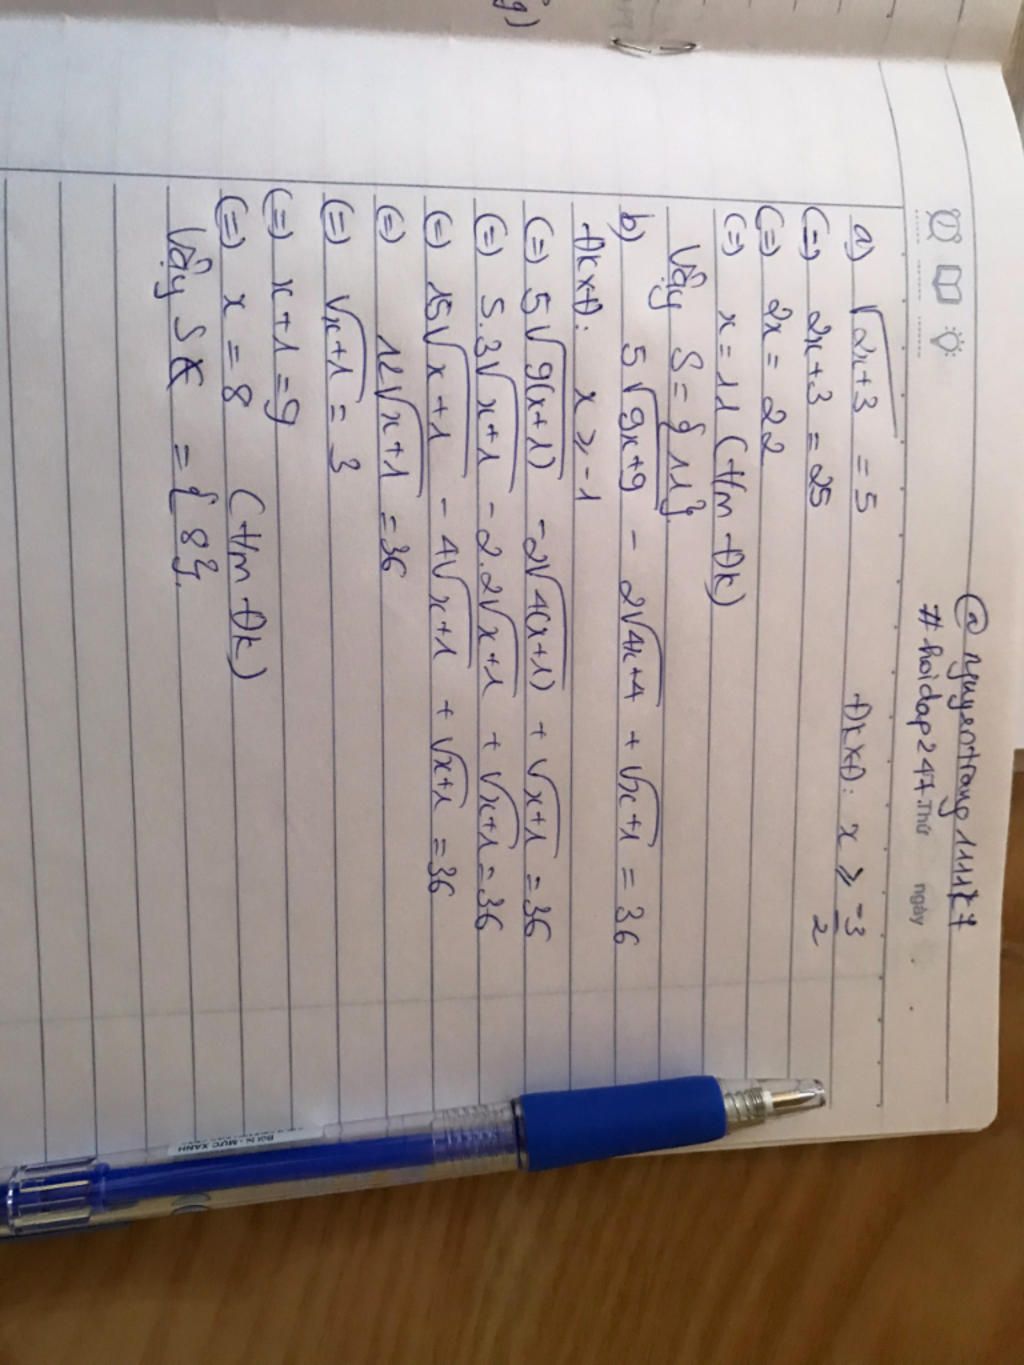 @nguyentrang111k7
#hoidap247.
Thứ ngày
a) √2x+3 = 5 ĐKXĐ: x ≥ -3/2
(=) 2x+3 = 25
(=) 2x = 22
(=) x = 11 (t/m ĐK)
Vậy S = { 11}.
b) 5√9x+9 - 2√4x+4 + √x+1 = 36
ĐKXĐ: x ≥ -1
(=) 5√9(x+1) - 2√4(x+1) + √x+1 = 36
(=) 5.3√x+1 - 2.2√x+1 + √x+1 = 36
(=) 15√x+1 - 4√x+1 + √x+1 = 36
(=) 12√x+1 = 36
(=) √x+1 = 3
(=) x+1 = 9
(=) x = 8 (t/m ĐK)
Vậy S = { 8}.
MỰC XANH